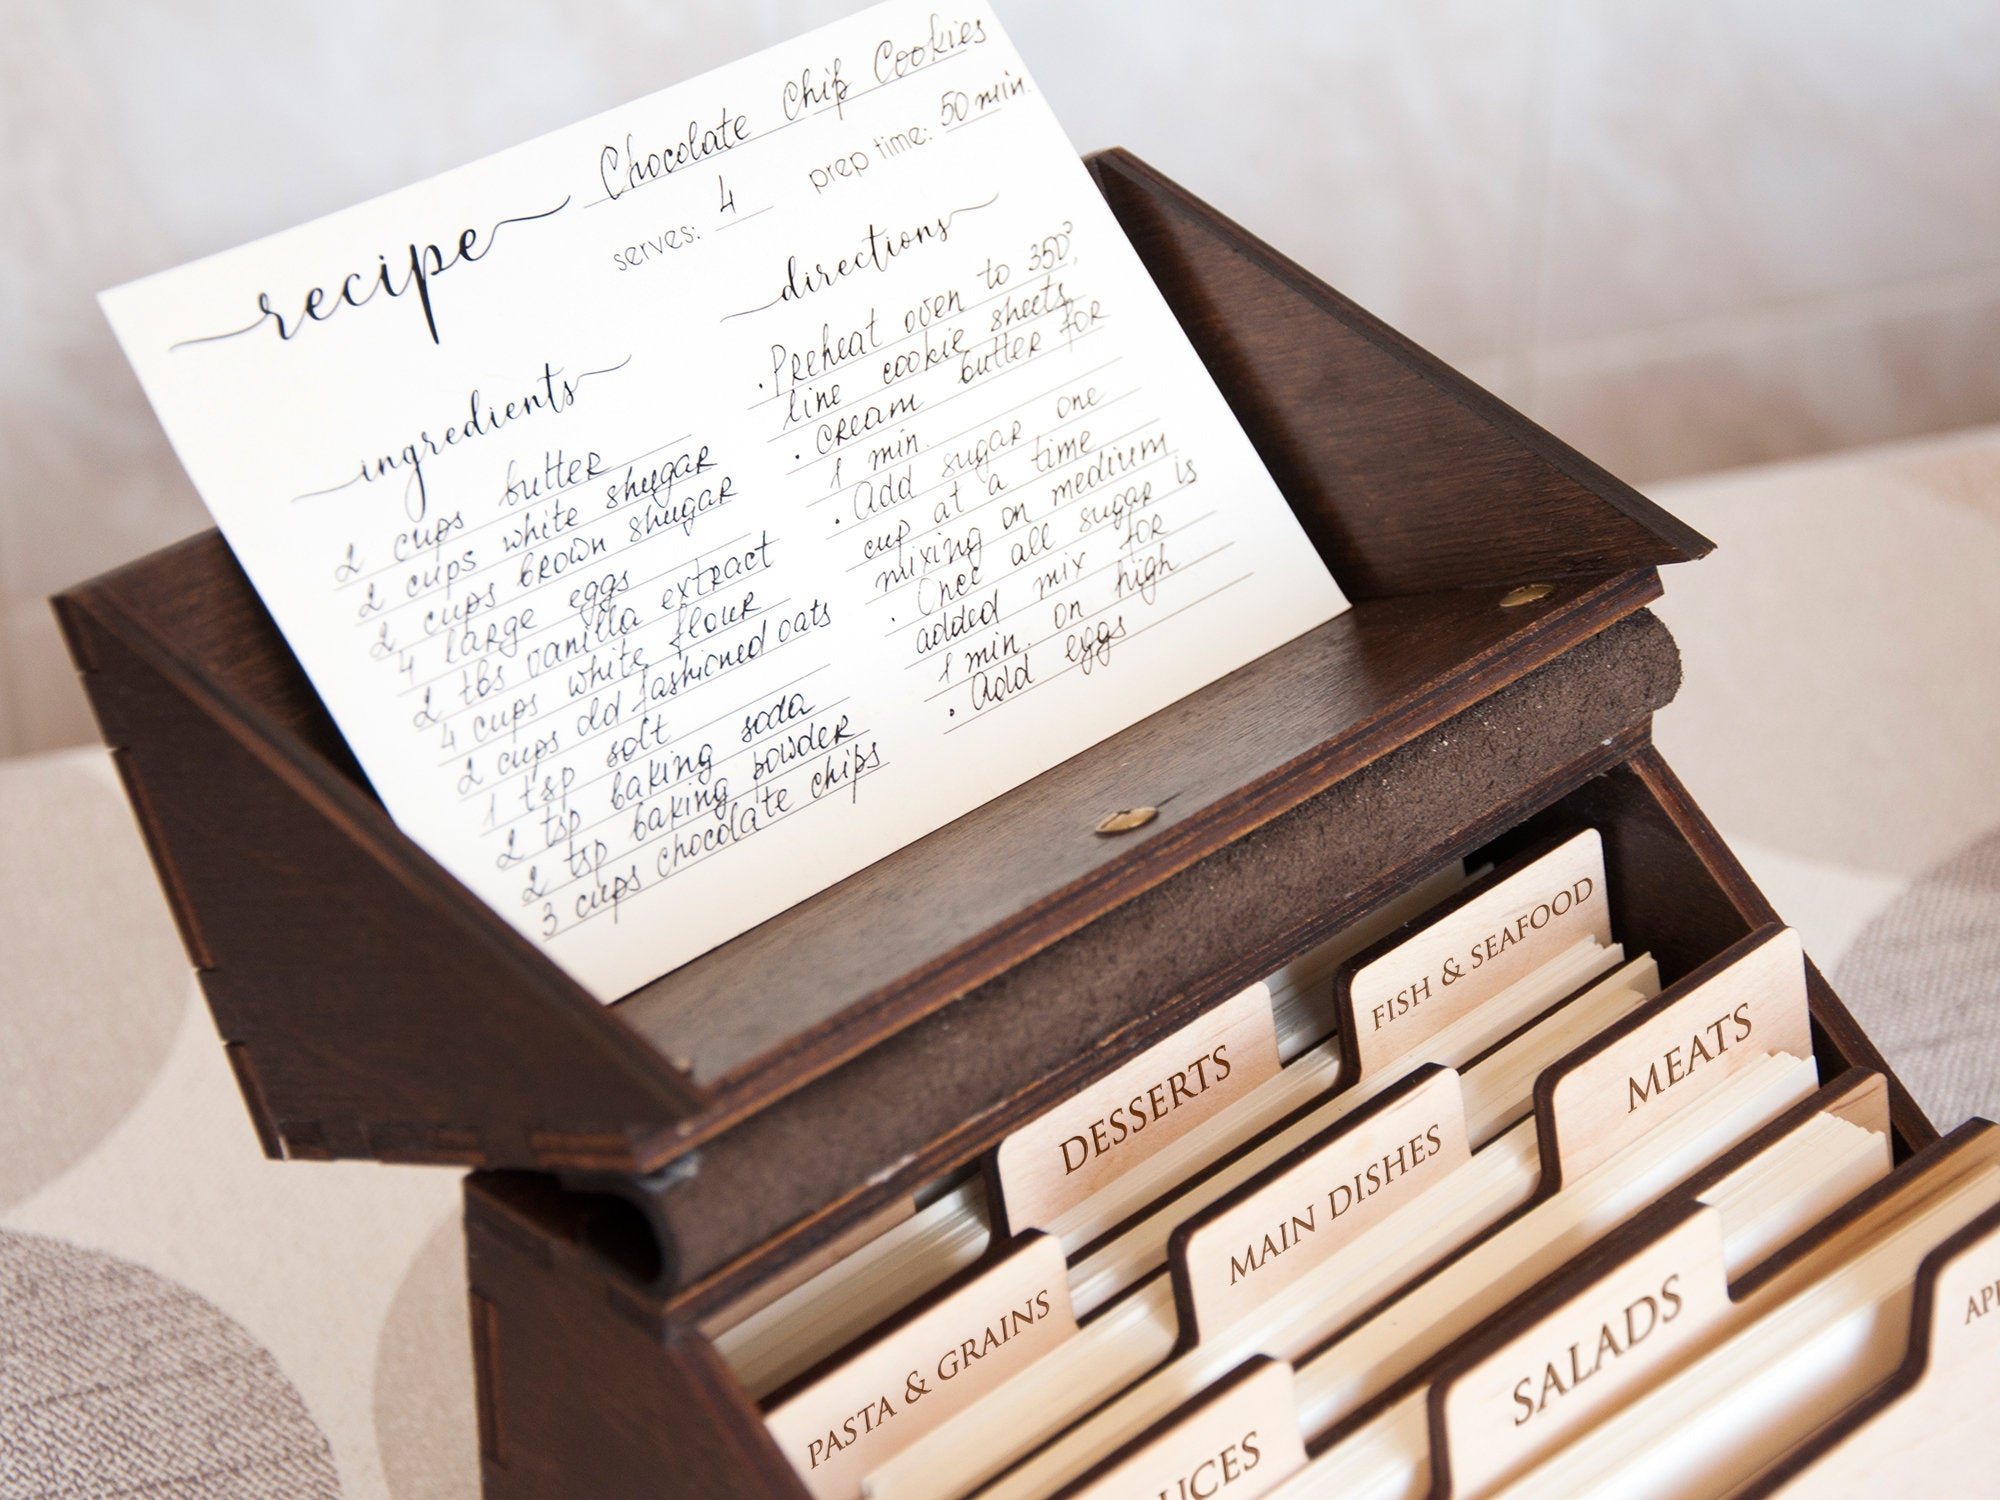 recipe Chocolate Chip Cookies
serves: 4 prep time: 50 min.
ingredients
2 cups butter
2 cups white shugar
2 cups brown shugar
4 large eggs
2 tbs vanilla extract
4 cups white flour
2 cups old fashioned oats
1 tsp salt
2 tsp baking soda
2 tsp baking powder
3 cups chocolate chips
directions
· Preheat oven to 350°,
line cookie sheets
· cream butter for
1 min.
· Add sugar one
cup at a time
mixing on medium
· Once all sugar is
added mix for
1 min. on high
· Add eggs
FISH & SEAFOOD
DESSERTS
MEATS
MAIN DISHES
PASTA & GRAINS
SALADS